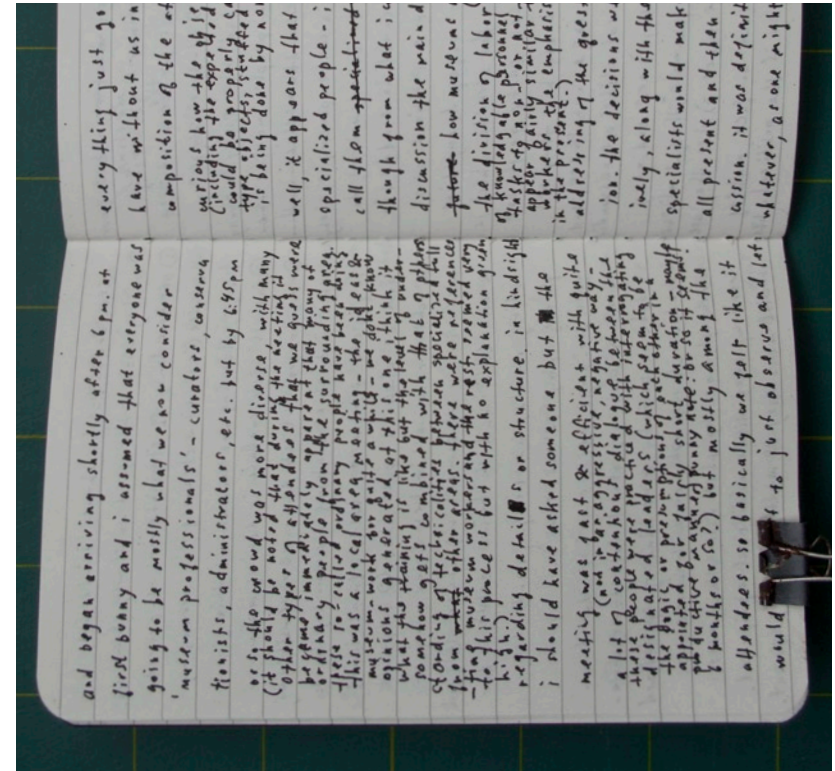 and began arriving shortly after 6 p.m. at
first bunny and i assumed that everyone was
going to be mostly what we now consider
'museum professionals' – curators, conserva
tionists, administrators, etc. but by 6:45 pm
or so the crowd was more diverse, with many
(it should be noted that during the meeting it
other types of attendees that we guess were
became immediately apparent that many of
ordinary people from the surrounding area.
these so-called ordinary people have been doing
this was a local area meeting – the ideas &
museum-work for quite a while – we don't know
opinions generated at this one i think it
what the training is like but the level of under-
somehow gets combined with that of others
standing of technicalities between specialized full
from other areas. there were references
-time museum workers and the rest seemed very
to this process but with no explanation given
high.)
regarding details or structure. in hindsight
i should have asked someone but the
meeting was fast & efficient with quite
(not in an aggressive, negative way –
a lot of continual dialogue between the
these people were practiced with interrogating
designated leaders (which seem to be
the logic or presumptions of each other in a
appointed for fairly short duration – maybe
productive manner, funny note: or so it seems.
6 months or so?) but mostly among the
attendees. so basically we felt like it
would to just observe and let
everything just go
have without us in
composition of the at
curious how the obje
(including the expected
could be properly ca
type objects, stuffed
is being done by non
well, it appears that
specialized people – i
call them specialized
though from what i c
discussion the main d
future how museums
the division of labor (
of knowledgable personnel
tasks to non- or not
appear fairly similar –
workers the emphasis
in the present.)
addressing of the ques
ion. the decisions we
ively, along with the
specialists would mak
all present and then
cussion. it was definit
whatever, as one might